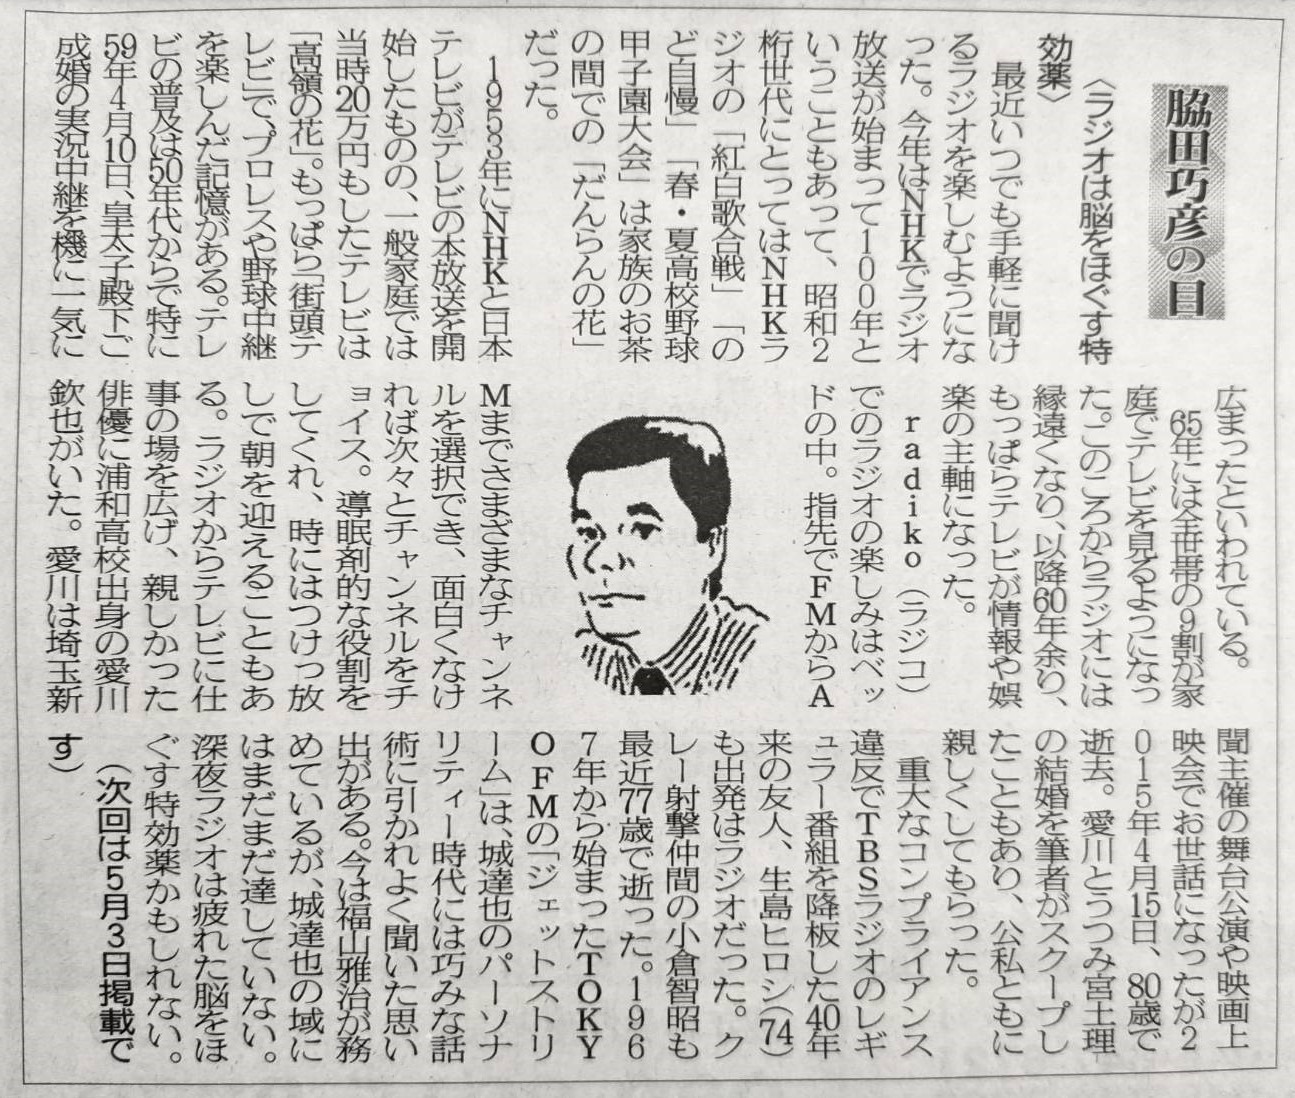 脇田巧彦の目
〈ラジオは脳をほぐす特
効薬〉
最近いつでも手軽に聞け
るラジオを楽しむようにな
った。今年はNHKでラジオ
放送が始まって100年と
いうこともあって、昭和2
桁世代にとってはNHKラ
ジオの「紅白歌合戦」「の
ど自慢」「春・夏高校野球
甲子園大会」は家族のお茶
の間での「だんらんの花」
だった。
1953年にNHKと日本
テレビがテレビの本放送を開
始したものの、一般家庭では
当時20万円もしたテレビは
「高嶺の花」。もっぱら「街頭テ
レビ」で、プロレスや野球中継
を楽しんだ記憶がある。テレ
ビの普及は50年代からで特に
59年4月10日、皇太子殿下ご
成婚の実況中継を機に一気に
広まったといわれている。
65年には全世帯の9割が家
庭でテレビを見るようになっ
た。このころからラジオには
縁遠くなり、以降60年余り、
もっぱらテレビが情報や娯
楽の主軸になった。
radiko（ラジコ）
でのラジオの楽しみはベッ
ドの中。指先でFMからA
Mまでさまざまなチャンネ
ルを選択でき、面白くなけ
れば次々とチャンネルをチ
ョイス。導眠剤的な役割を
してくれ、時にはつけっ放
しで朝を迎えることもあ
る。ラジオからテレビに仕
事の場を広げ、親しかった
俳優に浦和高校出身の愛川
欽也がいた。愛川は埼玉新
聞主催の舞台公演や映画上
映会でお世話になったが2
015年4月15日、80歳で
逝去。愛川とうつみ宮土理
の結婚を筆者がスクープし
たこともあり、公私ともに
親しくしてもらった。
重大なコンプライアンス
違反でTBSラジオのレギ
ュラー番組を降板した40年
来の友人、生島ヒロシ（74）
も出発はラジオだった。ク
レー射撃仲間の小倉智昭も
最近77歳で逝った。196
7年から始まったTOKY
OFMの「ジェットストリ
ーム」は、城達也のパーソナ
リティー時代には巧みな話
術に引かれよく聞いた思い
出がある。今は福山雅治が務
めているが、城達也の域に
はまだまだ達していない。
深夜ラジオは疲れた脳をほ
ぐす特効薬かもしれない。
（次回は5月3日掲載で
す）